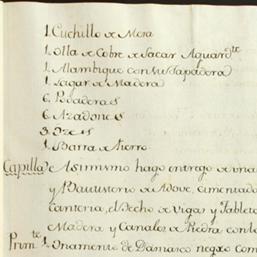 1. Cuchillo de Mesa
1. Olla de Cobre de Sacar Aguard.te
1. Alambique con su tapadera
1. Lagar de Madera
6. Podaderas
6. Azadones
3. Ozes
1. Barra de fierro
Capilla Asimismo hago entrego de una
y Bautisterio de Adove, cimentado
Canteria, el Techo de Vigas y Tableta
Madera y Canales de Piedra con
Prim.te 1. Ornamento de Damasco negro com